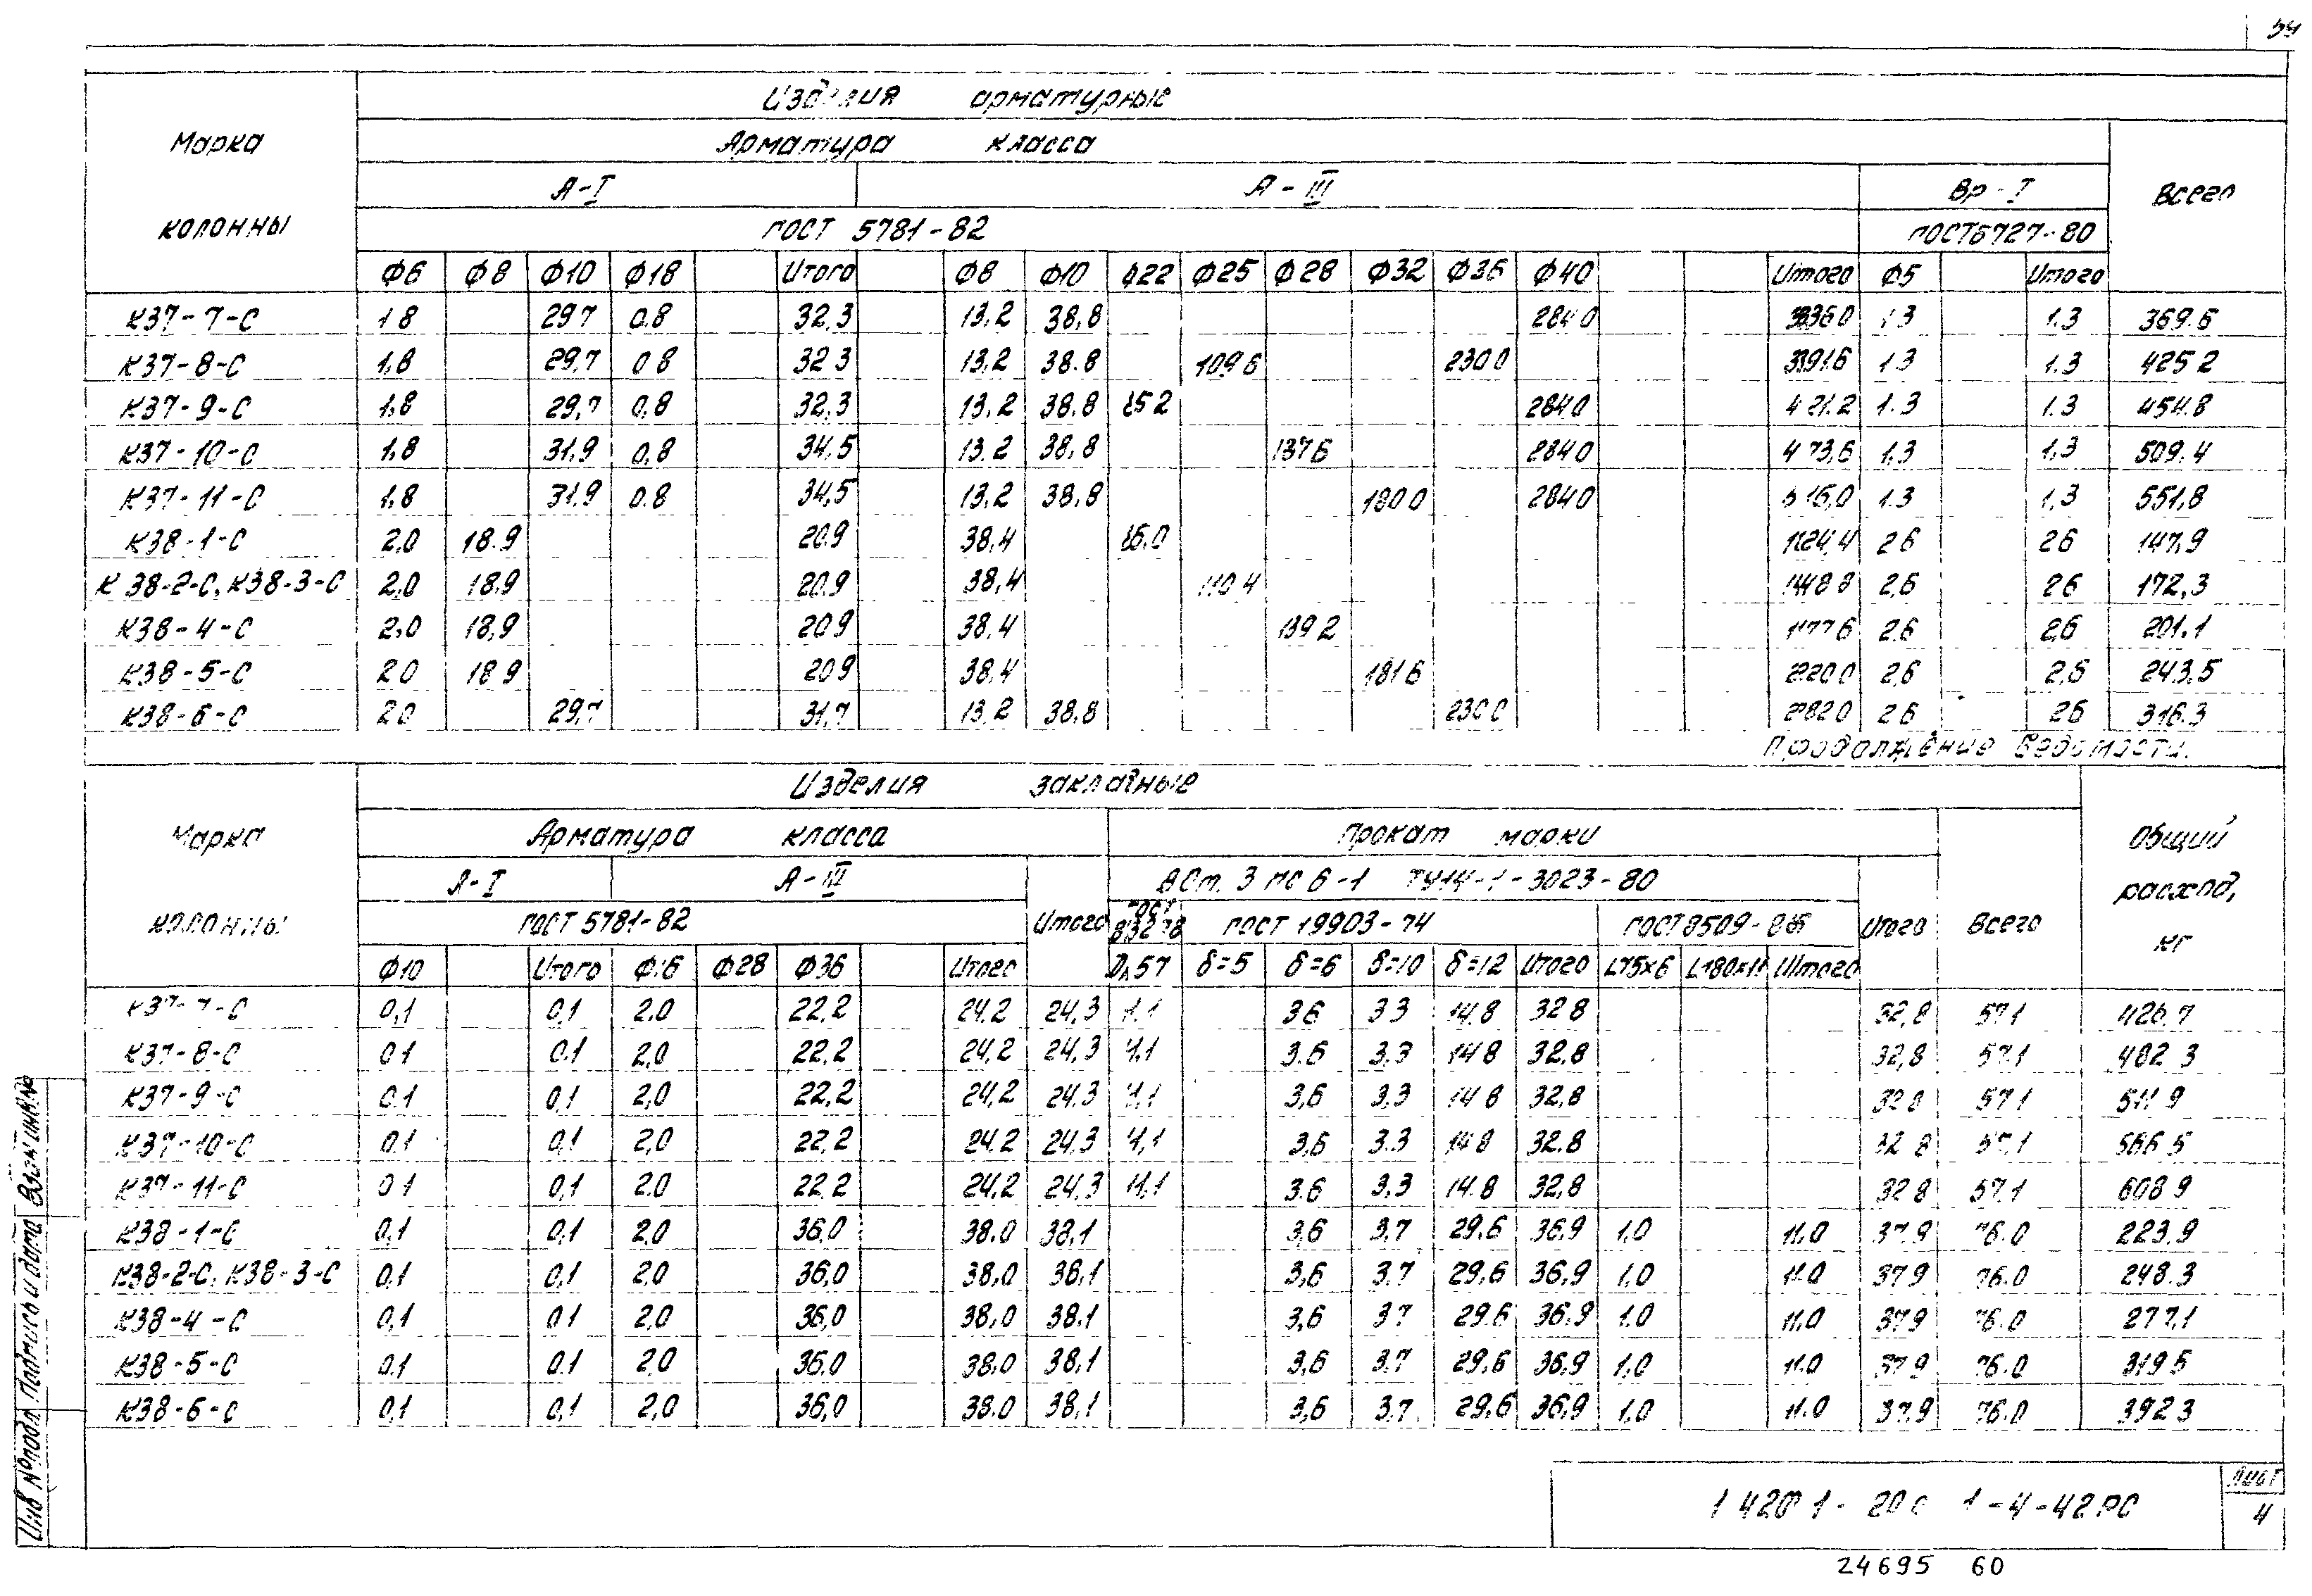 54
Изделия арматурные
Марка колонны
Арматура класса
Всего
А-I А-III Вр-I
ГОСТ 5781-82 ГОСТ 6727-80
Ф6 Ф8 Ф10 Ф18 Итого Ф8 Ф10 Ф22 Ф25 Ф28 Ф32 Ф36 Ф40 Итого Ф5 Итого
К37-7-С 1.8 29.7 0.8 32.3 13,2 38,8 284.0 336.0 1.3 1.3 369.6
К37-8-С 1,8 29,7 0.8 32.3 13,2 38.8 109.6 230.0 391.6 1.3 1.3 425.2
К37-9-С 1,8 29,7 0.8 32.3 13,2 38.8 85.2 284.0 421.2 1.3 1.3 454.8
К37-10-С 1,8 31,9 0,8 34,5 13.2 38,8 137.6 284.0 473,6 1,3 1,3 509.4
К37-11-С 1,8 31.9 0.8 34,5 13,2 38,8 180.0 284.0 516,0 1.3 1,3 551,8
К38-1-С 2,0 18.9 20.9 38,4 86,0 124,4 2.6 2.6 147,9
К38-2-С, К38-3-С 2,0 18,9 20.9 38,4 110.4 148.8 2,6 2.6 172,3
К38-4-С 2,0 18,9 20.9 38.4 139.2 177.6 2.6 2,6 201.1
К38-5-С 2.0 18.9 20.9 38,4 181.6 220.0 2,6 2,6 243,5
К38-6-С 2.0 29,7 31,7 13.2 38,8 230.0 282.0 2.6 2.6 316.3
Продолжение ведомости.
Изделия закладные
Марка колонны
Арматура класса Прокат марки
Общий расход, кг
А-I А-III ВСт.3 пс 6-1 ТУ14-1-3023-80
ГОСТ 5781-82 Итого ГОСТ 19903-74 ГОСТ 8509-86 Итого Всего
Ф10 Итого Ф16 Ф28 Ф36 Итого Ду57 δ=5 δ=6 δ=10 δ=12 Итого L75×6 L180×11 Итого
К37-7-С 0,1 0,1 2.0 22,2 24.2 24,3 1.1 3.6 3.3 14.8 32.8 32,8 57.1 426.7
К37-8-С 0.1 0.1 2,0 22,2 24,2 24,3 1,1 3.6 3.3 14.8 32.8 32,8 57.1 482.3
К37-9-С 0.1 0,1 2,0 22,2 24,2 24.3 1,1 3,6 3,3 14.8 32,8 32.8 57.1 511.9
К37-10-С 0.1 0,1 2,0 22,2 24.2 24.3 1,1 3,6 3.3 14.8 32.8 32.8 57,1 566.5
К37-11-С 0.1 0,1 2.0 22.2 24,2 24.3 11,1 3.6 3,3 14.8 32,8 32.8 57.1 608.9
К38-1-С 0,1 0,1 2.0 36,0 38.0 38,1 3,6 3,7 29,6 36,9 1,0 11.0 37.9 76.0 223.9
К38-2-С, К38-3-С 0,1 0,1 2,0 36,0 38,0 38,1 3,6 3.7 29,6 36,9 1,0 11.0 37.9 76.0 248.3
К38-4-С 0,1 0.1 2,0 36,0 38,0 38.1 3,6 3.7 29.6 36.9 1.0 11.0 37.9 76.0 277,1
К38-5-С 0.1 0.1 2,0 36.0 38.0 38,1 3,6 3.7 29,6 36,9 1,0 11.0 37.9 76.0 319.5
К38-6-С 0,1 0,1 2,0 36,0 38.0 38,1 3,6 3.7. 29,6 36,9 1,0 11.0 37,9 76.0 392.3
Инв № подл Подпись и дата Взам инв №
1-4-42РС
Лист
4
24695 60